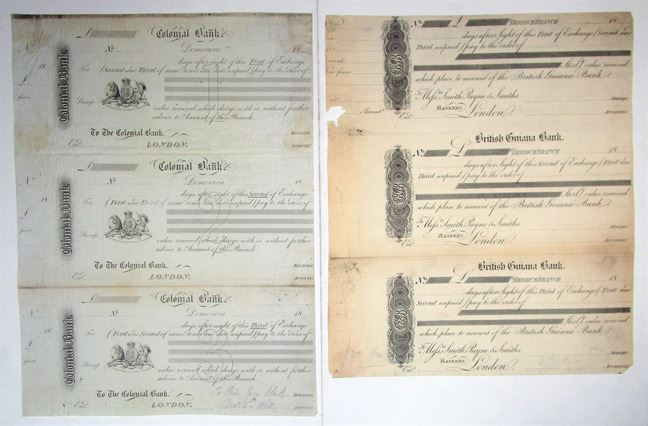 Colonial Bank
£ No Demerara 18
days after sight of this First of Exchange
For (Second and Third of same tenor and date unpaid) pay to the order of
Stamp
value received which charge with or without further
advice to Account of this Branch.
To The Colonial Bank,
LONDON.
Colonial Bank
Colonial Bank
£ No Demerara 18
days after sight of this Second of Exchange
For (First and Third of same tenor and date unpaid) pay to the order of
Stamp
value received which charge with or without further
advice to Account of this Branch.
To The Colonial Bank,
LONDON.
Colonial Bank
Colonial Bank
£ No Demerara 18
days after sight of this Third of Exchange
For (First and Second of same tenor and date unpaid) pay to the order of
Stamp
value received which charge with or without further
advice to Account of this Branch.
To The Colonial Bank,
LONDON.
Colonial Bank
No £ BERBICE BRANCH 18
days after Sight of this First of Exchange (Second and
Third unpaid) pay to the order of
Sterl.g value received
which place to account of the British Guiana Bank.
To Mess.rs Smith, Payne & Smiths,
BANKERS,
London
Manager.
British Guiana Bank.
No £ BERBICE BRANCH 18
days after Sight of this Second of Exchange (First and
Third unpaid) pay to the order of
Sterl.g value received
which place to account of the British Guiana Bank.
To Mess.rs Smith, Payne & Smiths,
BANKERS,
London
Manager.
British Guiana Bank.
No £ BERBICE BRANCH 18
days after Sight of this Third of Exchange (First and
Second unpaid) pay to the order of
Sterl.g value received
which place to account of the British Guiana Bank.
To Mess.rs Smith, Payne & Smiths,
BANKERS,
London
Manager.